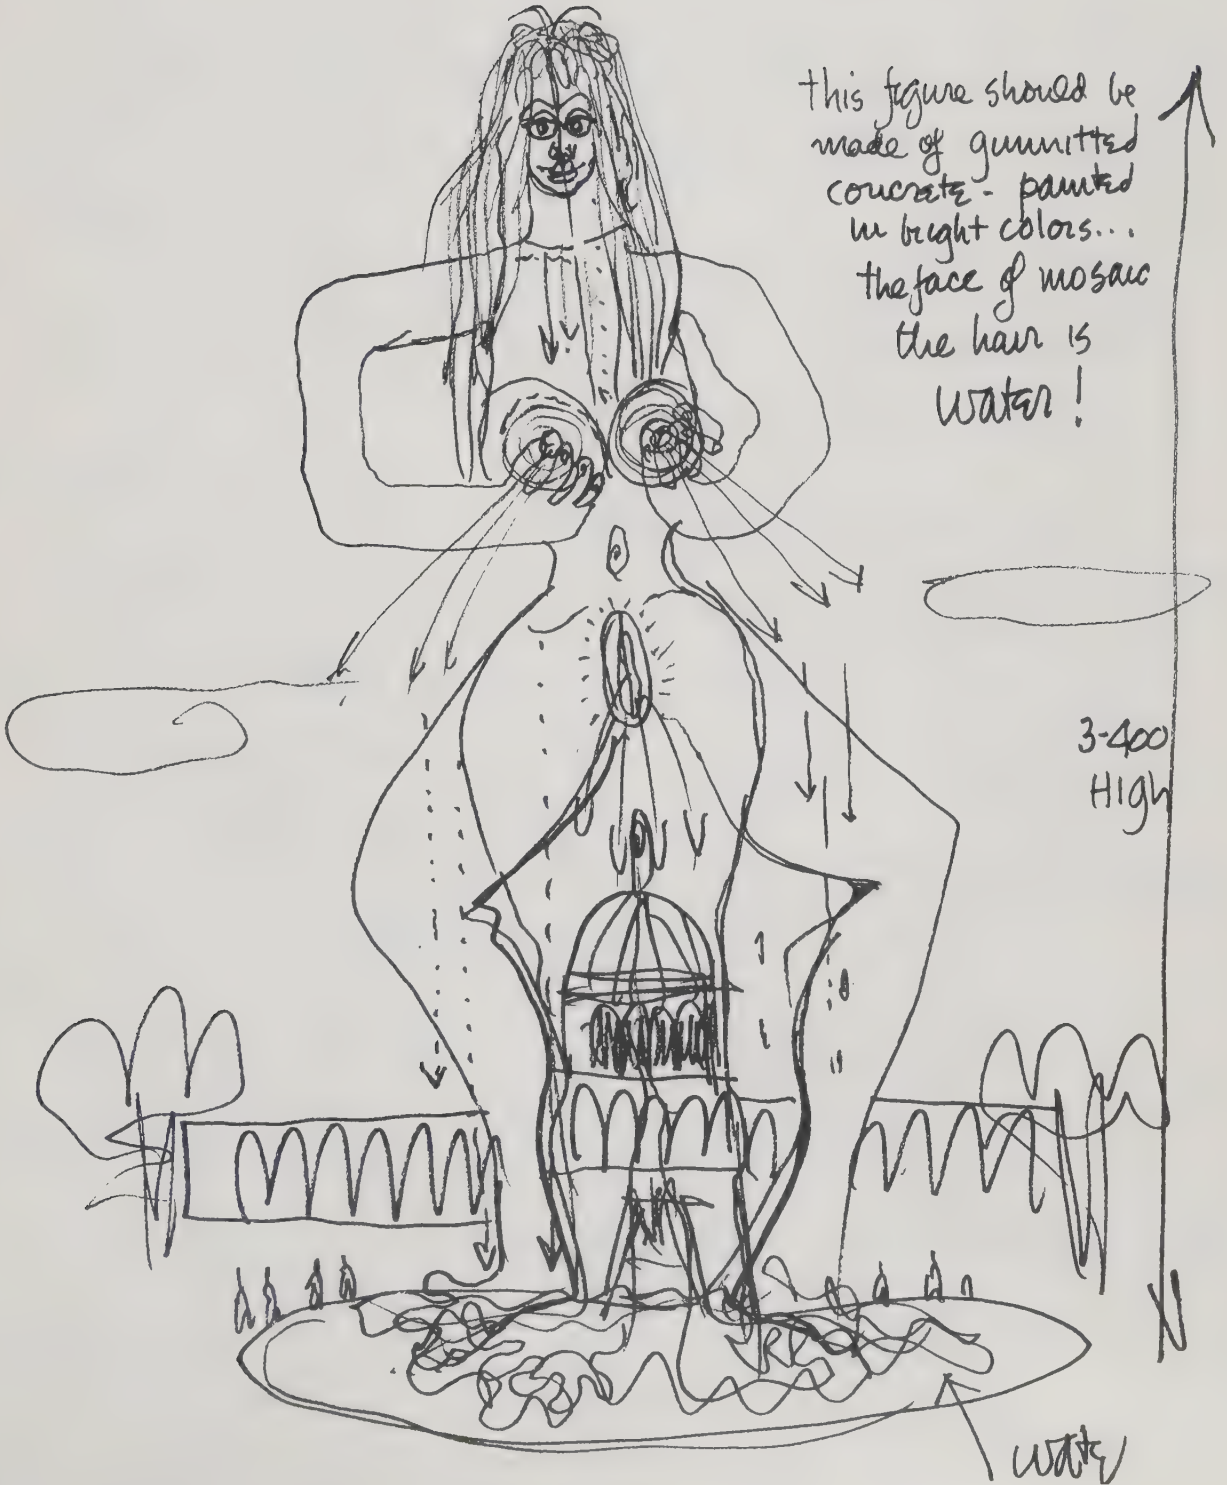 this figure should be
made of gunnitted
concrete - painted
in bright colors...
the face of mosaic
the hair is
water!
3-400
HIgh
water